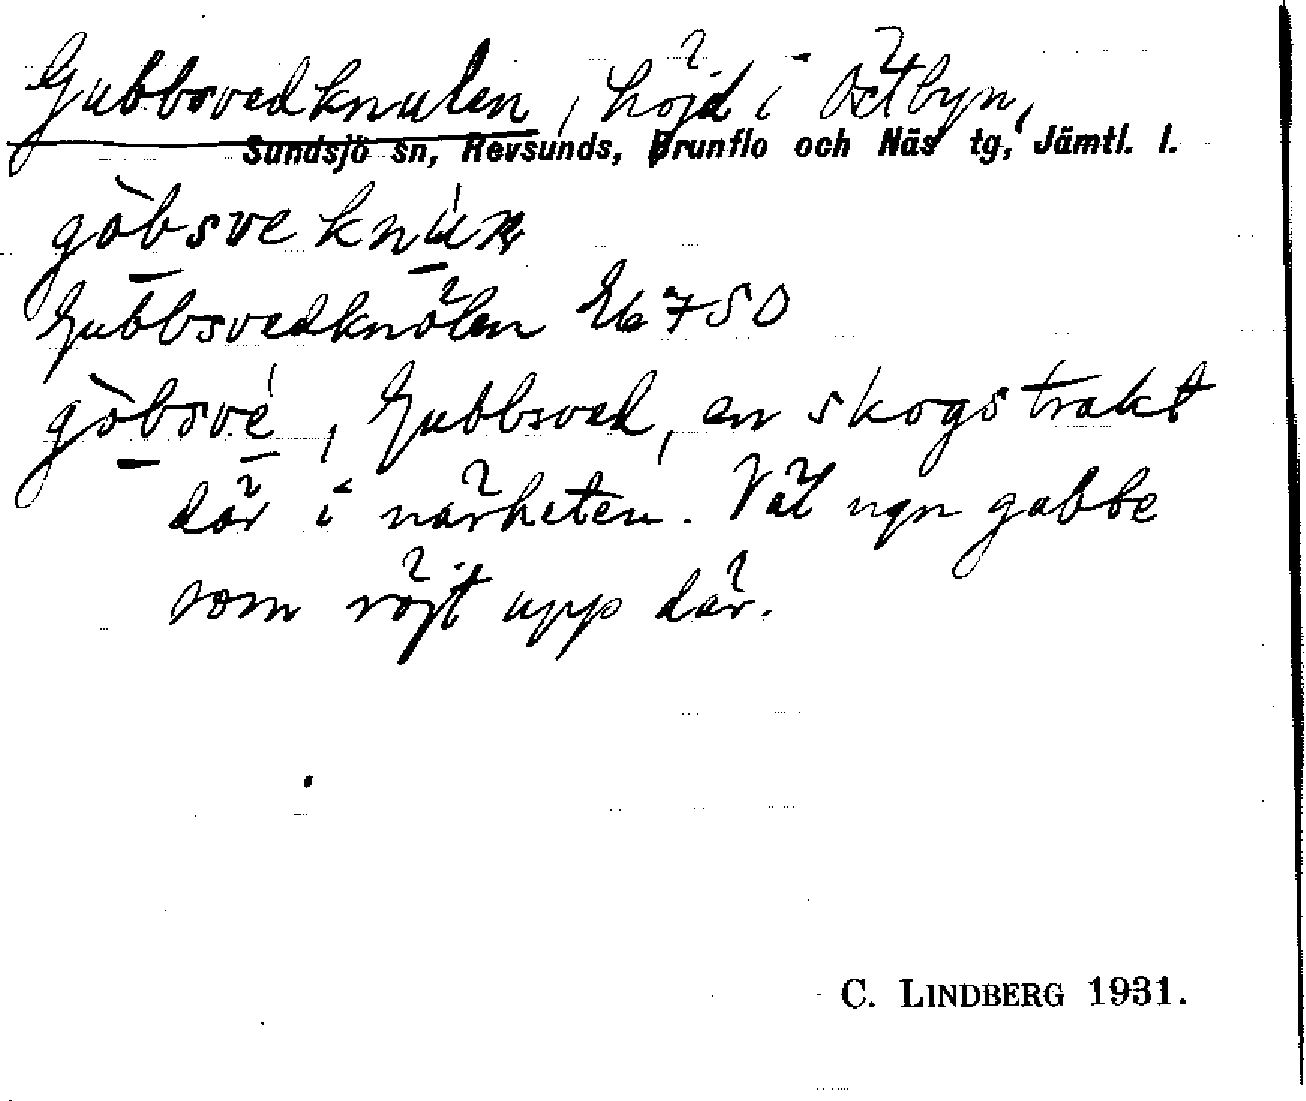 Gubbsvedknulen, höjd i Östbyn,
Sundsjö sn, Revsunds, Brunflo och Näs tg, Jämtl. l.
gòbsve knúɴ
Gubbsvedknölen Eb 750
gòbsvé, Gubbsved, en skogstrakt
där i närheten. Väl ngn gubbe
som röjt upp där.
C. LINDBERG 1931.